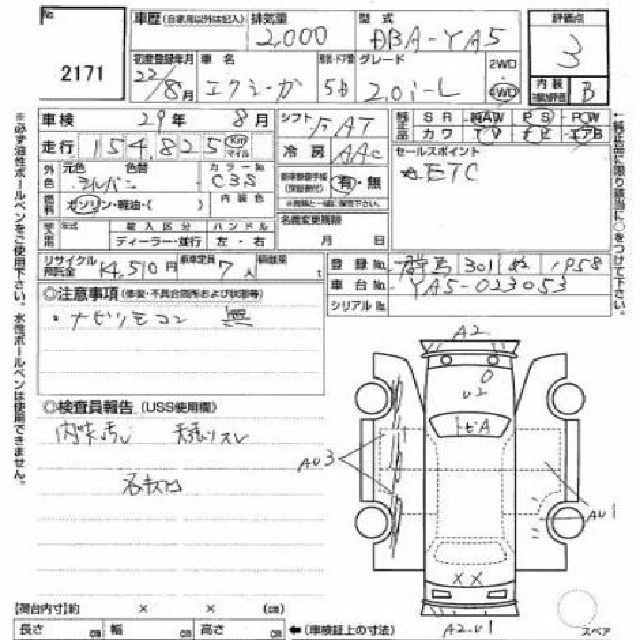 No. 2171
車歴 (自家用以外は記入) 排気量 2,000 型式 DBA-YA5 評価点 3
初度登録年月 22/8月 車名 エクシーガ 形状・ドア数 5D グレード 2.0i-L 2WD 4WD 内装 B
車検 29年 8月 シフト FAT SR AW PS PW
走行 154,825 Km マイル 冷房 AAC カワ TV エアB
外色 元色 シルバー 色替 カラーNo. C3S 有・無 セールスポイント
燃料 ガソリン・軽油・( ) 内装色 ☆ETC
年式 輸入区分 ハンドル 名義変更期限
ディーラー・並行 左・右 月 日
リサイクル預託金 14,510円 乗車定員 7人 積載量 t 登録No. 群馬 301 ぬ 1958
車台No. YA5-023053
シリアルNo.
◎注意事項 (修復・不具合箇所および状態等)
・ナビリモコン 無
◎検査員報告 (USS使用欄)
内味汚レ 天張リスレ
A2
U2
ヒA
AU3
AU1
XX
A2-U1
スペア
【荷台内寸】約 × × (cm)
長さ cm 幅 cm 高さ cm ←(車検証上の寸法)
※必ず油性ボールペンをご使用下さい。水性ボールペンは使用できません。